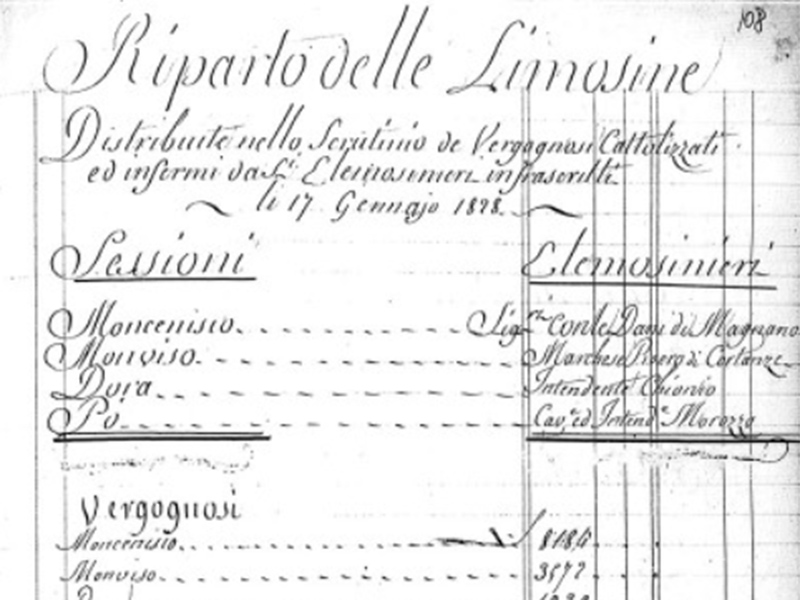 108
Riparto delle Limosine
Distribuite nello Scrutinio de Vergognosi Cattolizzati
ed infermi da Sig.i Elemosinieri infrascritti
li 17 Gennajo 1828.
Sessioni Elemosinieri
Moncenisio. Sig.ri Conte Dani di Magnano
Monviso. Marchese Roero di Cortanze
Dora Intendente Chionio
Po Cav.e ed Intend.e Morozzo
Vergognosi
Moncenisio.
Monviso. 3572